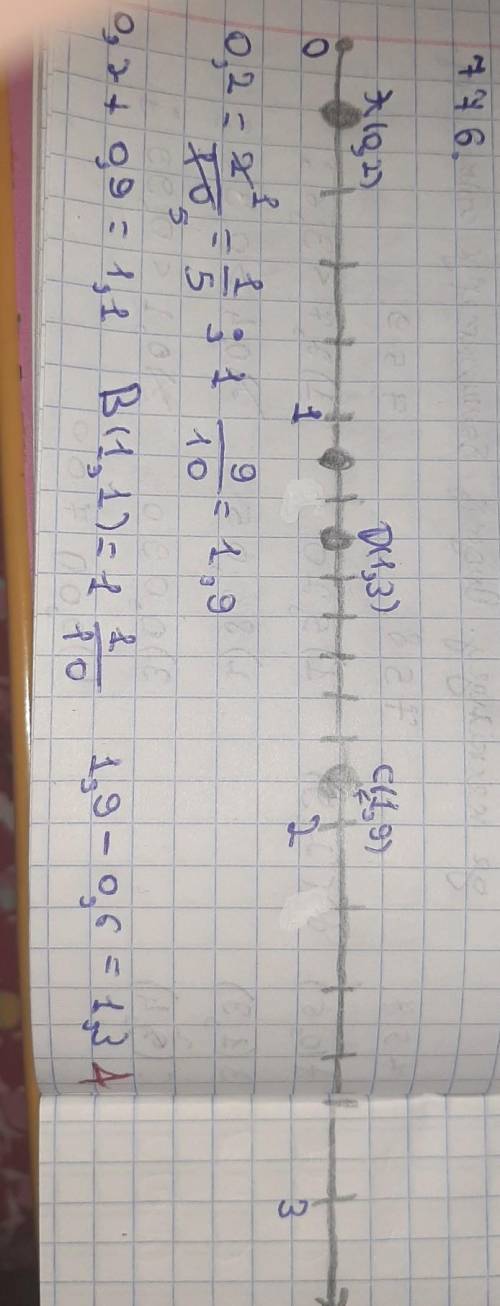 776.
A(0,2) D(1,3) C(1,9)
0 1 2 3
0,2 = 2/10 = 1/5 ; 1 9/10 = 1,9
0,2 + 0,9 = 1,1 B(1,1) = 1 1/10 1,9 - 0,6 = 1,3